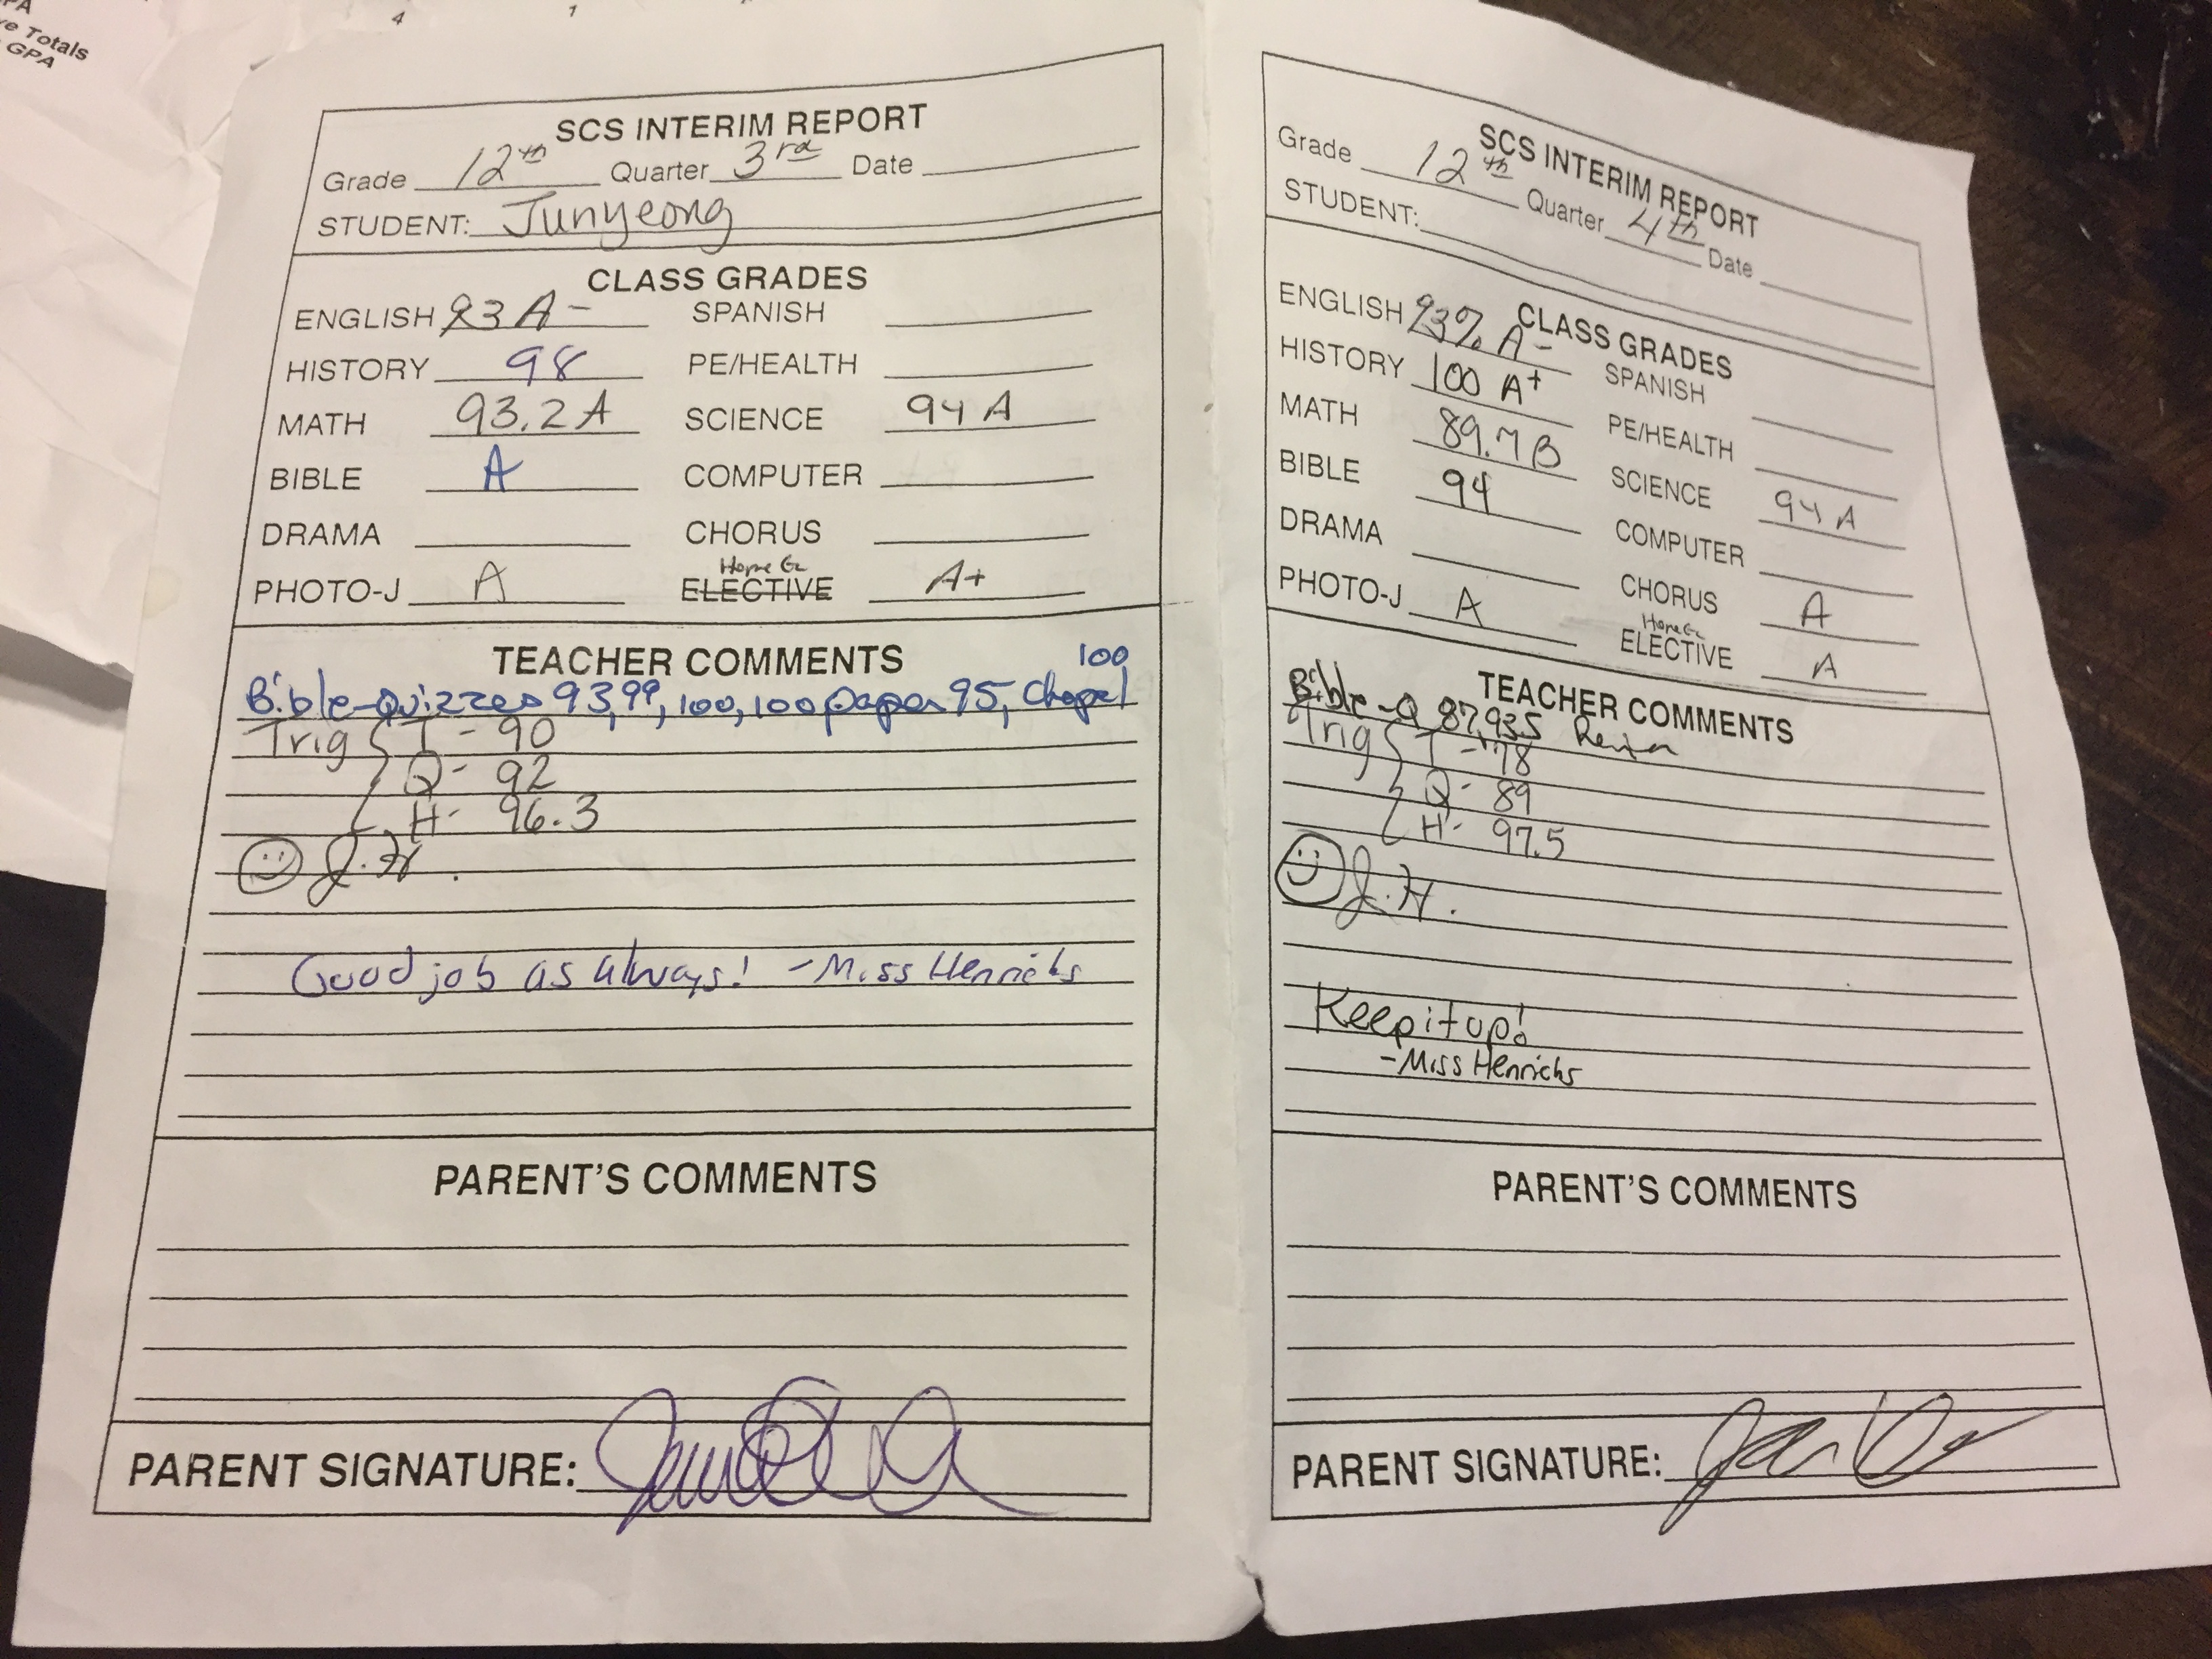 ve Totals
GPA
4 1
SCS INTERIM REPORT
Grade 12th Quarter 3rd Date
STUDENT: Junyeong
CLASS GRADES
ENGLISH 93 A- SPANISH
HISTORY 98 PE/HEALTH
MATH 93.2 A SCIENCE 94 A
BIBLE A COMPUTER
DRAMA CHORUS
Home Ec
PHOTO-J A ELECTIVE A+
TEACHER COMMENTS 100
Bible-Quizzes 93, 99, 100, 100 paper 95, Chapel
Trig { T - 90
Q - 92
H - 96.3
J.H.
Good job as always! - Miss Henrichs
PARENT'S COMMENTS
PARENT SIGNATURE:
SCS INTERIM REPORT
Grade 12th Quarter 4th Date
STUDENT:
CLASS GRADES
ENGLISH 93% A- SPANISH
HISTORY 100 A+ PE/HEALTH
MATH 89.7 B SCIENCE 94 A
BIBLE 94 COMPUTER
DRAMA CHORUS A
Home Ec
PHOTO-J A ELECTIVE A
TEACHER COMMENTS
Bible-Q 87, 93.5
Trig { T - 78
Q - 89
H - 97.5
J.H.
Keep it up!
- Miss Henrichs
PARENT'S COMMENTS
PARENT SIGNATURE: